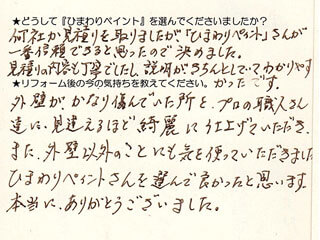 ★どうして『ひまわりペイント』を選んでくださいましたか?
何社か見積りを取りましたが『ひまわりペイント』さんが
一番信頼できると思ったので決めました。
見積りの内容も丁寧でしたし、説明がきちんとしていてわかりやす
かったです。
★リフォーム後の今の気持ちを教えてください。
外壁がかなり傷んでいた所を、プロの職人さん
達に、見違えるほど綺麗に仕上げていただき、
また、外壁以外のことにも気を使っていただきました
ひまわりペイントさんを選んで良かったと思います。
本当に、ありがとうございました。